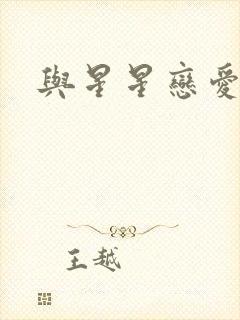 與星星戀愛
王越